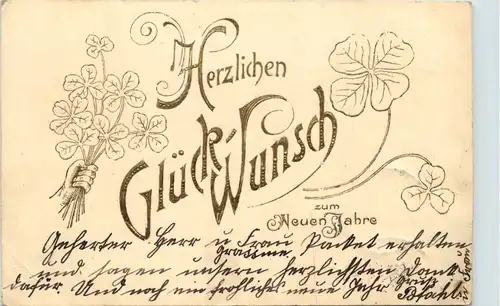 Herzlichen
Glück-Wunsch
zum
Neuen Jahre
Geherter Herr u Frau Packet erhalten
Grassme
und sagen unsern herzlichsten Dank
dafür. Und noch ein frohliches neue Jahr Gruß
u Frau